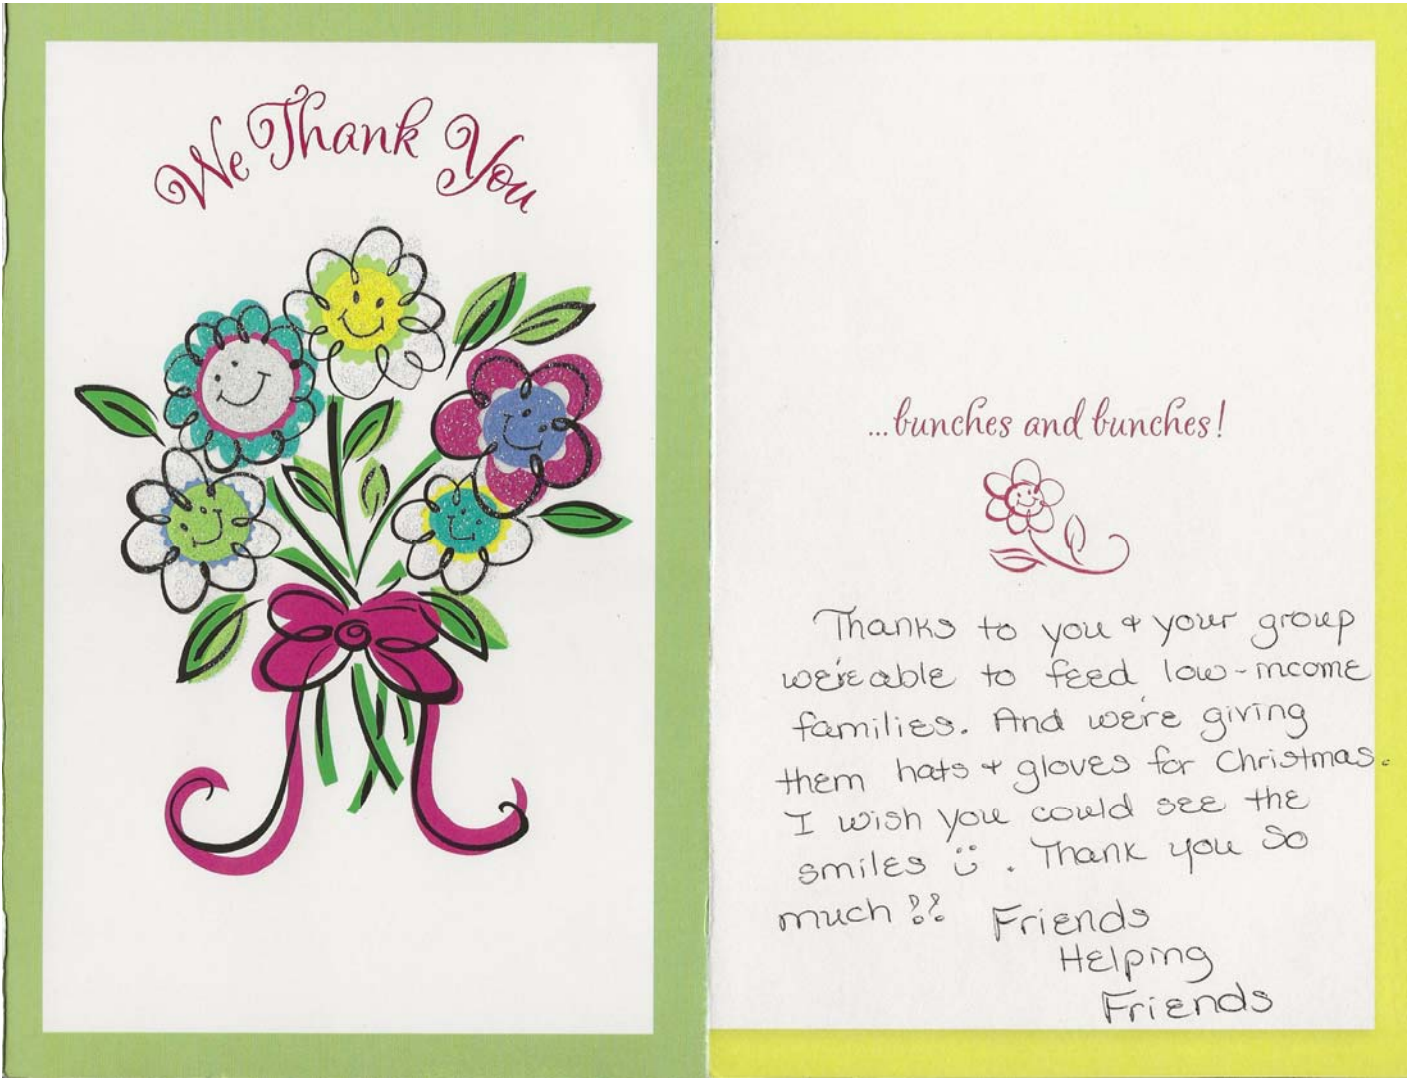 We Thank You
...bunches and bunches!
Thanks to you & your group
we're able to feed low-income
families. And we're giving
them hats & gloves for Christmas.
I wish you could see the
smiles ü. Thank you so
much!!
Friends
Helping
Friends